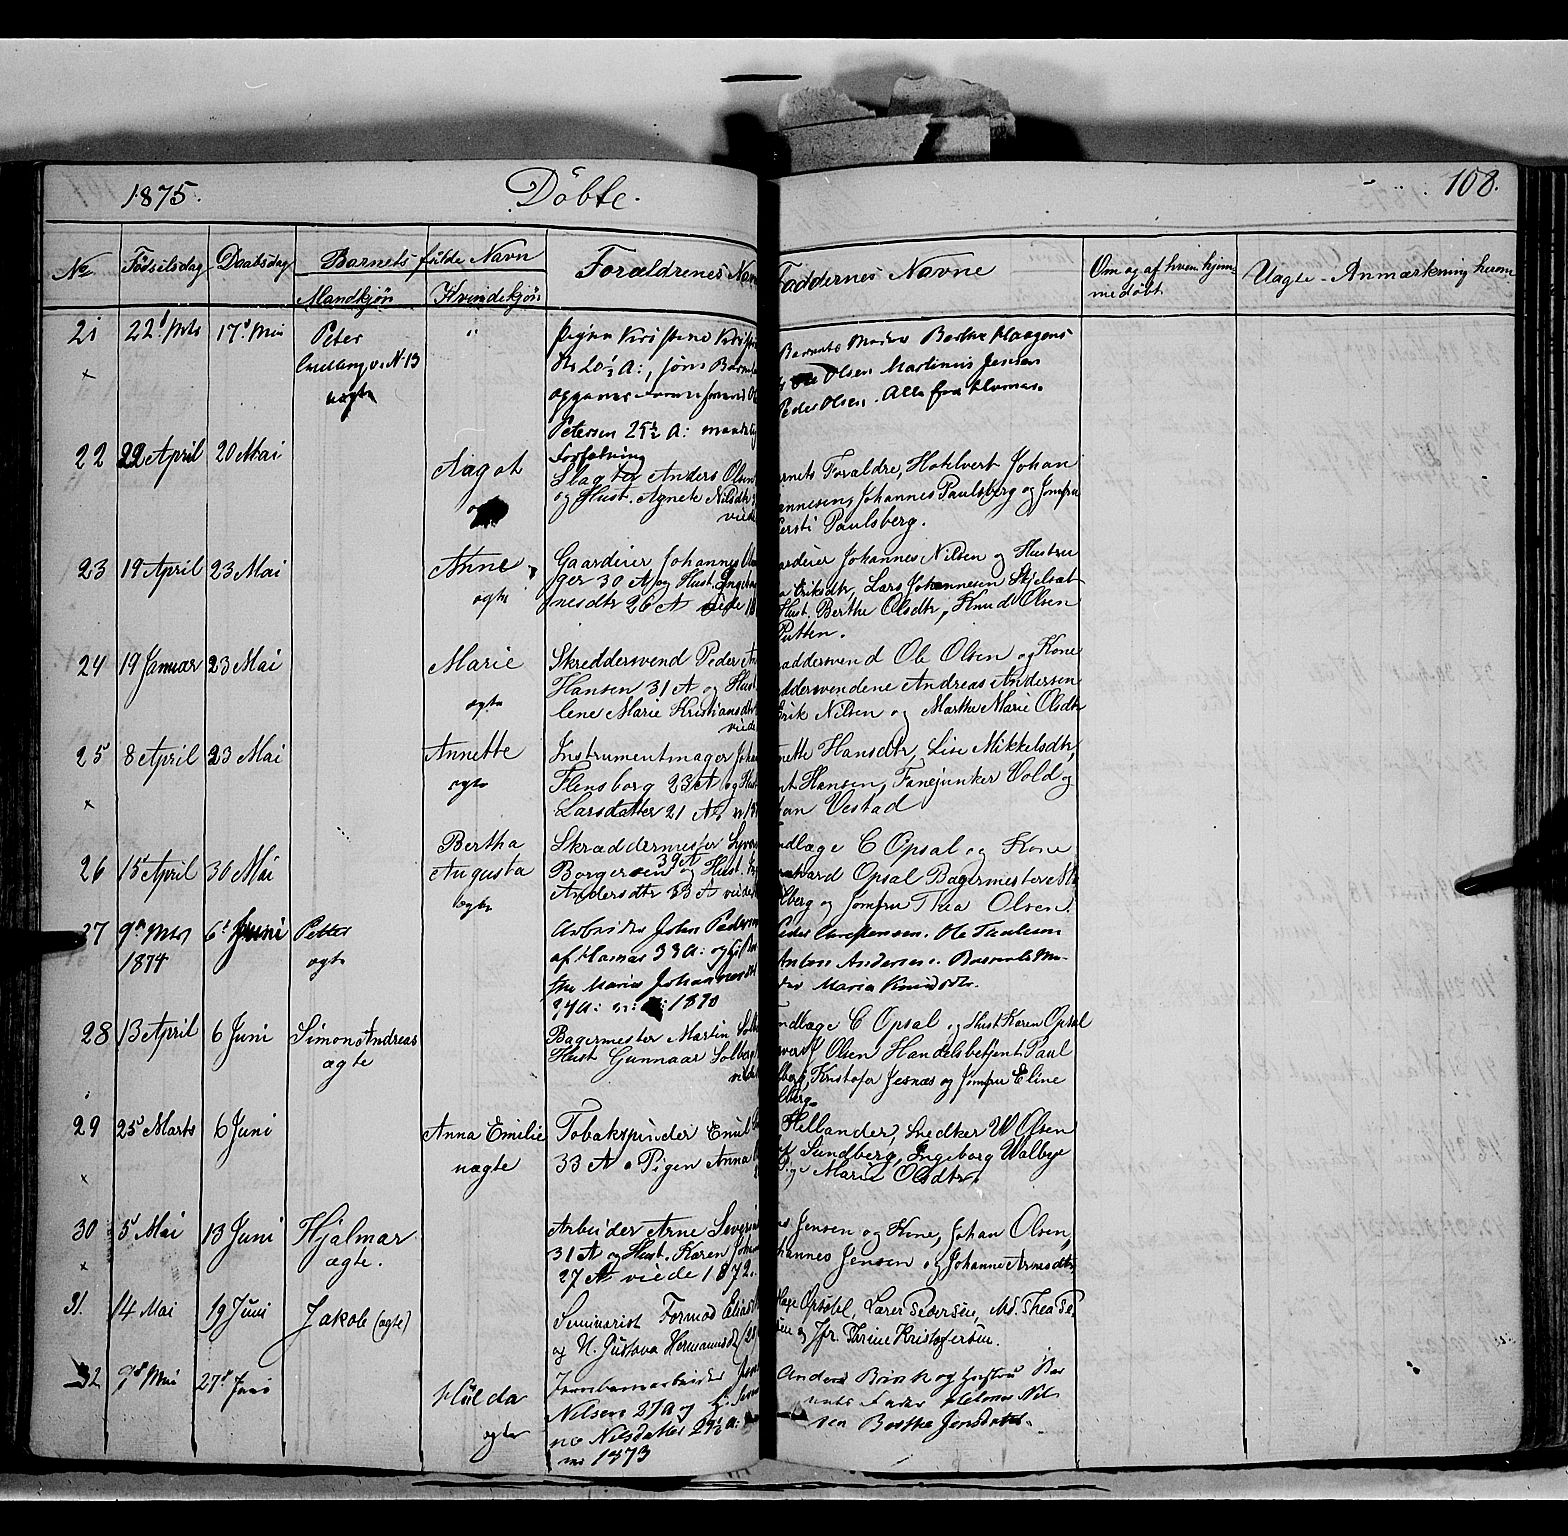 1875. Döbte. 108.
No Födselsdag Daabsdag Barnets fulde Navn Forældrenes Navn Faddernes Navne Om og af hvem hjemmedöbt Uægte - Anmærkning herom
Mandkjön Kvindekjön
21 22d Mts 17d Mai Peter "
Pigen Kristene
uægte
Petersen 25½ A:
Barnets Moder Berthe Haagens
Ole Olsen Martinus Jensen
Peder Olsen. Alle fra Hamar.
22 22 April 20 Mai Aagot
Slagter Anders Olsen
og Hust. Agnete Nilsdtr
viede
rnets Forældre, Hotelvert Johan
annesen, Johannes Paulsberg og Jomfru
Kersti Paulsberg.
23 19 April 23 Mai Anne
ægte
Gaardeier Johannes
ger 30 A og Hust. Ingebor
nesdtr 26 A viede 18
ardeier Johannes Nilsen og Hustru
a Eriksdtr, Lars Johannesen Skjelsæt
Hust. Berthe Olsdtr, Knud Olsen
Putten.
24 19 Januar 23 Mai Marie
ægte
Skreddersvend Peder An
Hansen 31 A og Hust
lene Marie Kristiansdtr
viede
æddersvend Ole Olsen og Kone
ddersvendene Andreas Andersen
Erik Nilsen og Marthe Marie Olsdtr
25 8 April 23 Mai Annette
ægte
Instrumentmager Joha
Flensborg 23 A og Hust
Larsdatter 21 A
nette Hansdtr, Lise Mikkelsdtr,
nt Hansen, Fanejunker Vold og
han Vestad
26 15 April 30 Mai Bertha
Augusta
ægte
Skræddermester Syver
Borgersen 39 A og Hust.
Andersdtr 33 A viede
ndlæge C Opsal og Kone
vard Opsal Bagermester
lberg og Jomfru Thea Olsen.
27 9de Mts 1874 6t Juni Petter
ægte
Arbeider John Pedersen
af Hamar 33 A: og
the Maria Johannesdt
27 A: 1870
Peder Christensen. Ole Paulsen
Anton Andersen. Barnets Mo-
der Maria Knudsdtr.
28 13 April 6 Juni Simon Andreas
ægte
Bagermester Martin Solb
Hust Gunnaar Solberg
viede
ndlæge C Opsal og Hust Karen Opsal
Olsen Handelsbetjent Paul
lberg, Kristofer Jesnæs og Jomfru Eline
lberg.
29 25 Marts 6 Juni Anna Emilie
uægte
Tobakspinder Emil
33 A o Pigen Anna
Hellander, Snedker W Olsen
Sundberg, Ingeborg Walbye
Pige Marie Olsdtr.
30 5 Mai 13 Juni Hjalmar
ægte.
Arbeider Arne Severin
31 A og Hust. Karen Joha
27 A viede 1872.
Jensen og Kone, Johan Olsen,
hannes Jensen og Johanne Arnesdtr
31. 14 Mai 19 Juni Jakob (ægte)
Seminarist Formod Elias
og H. Gustava Hermansdt (28)
læge Opsahl, Lærer Pedersen, Md. Thea Pe
sen og Jfr. Thrine Kristofersen.
32 9d Mai 27d Juni Hulda
ægte
Jernbanearbeider
Nilsen 27 A og
ne Nilsdatter 29½ A:
1873
Anders Brink og Hustru Bar
nets Fader
sen Berthe Jensdatter.